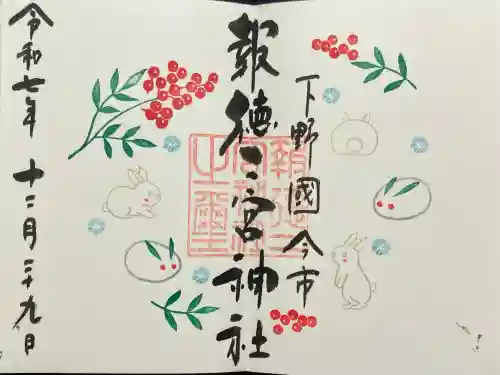 下野國今市
報徳二宮神社
令和七年 十二月二十九日
報徳二宮神社之璽